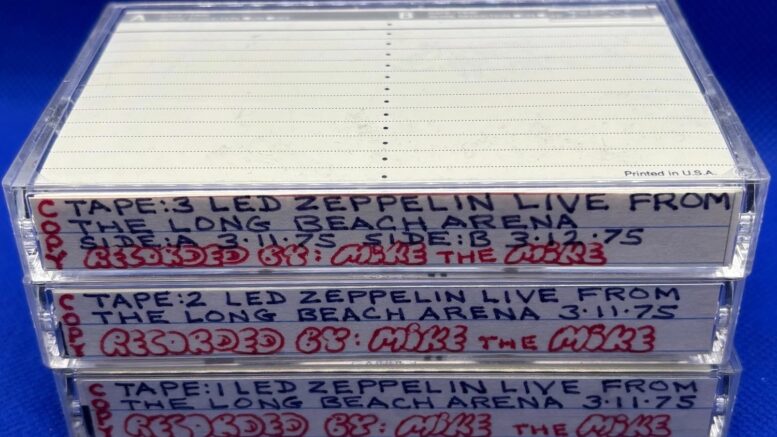 A
B
Printed in U.S.A.
COPY
TAPE:3 LED ZEPPELIN LIVE FROM
THE LONG BEACH ARENA
SIDE:A 3.11.75 SIDE:B 3.12.75
RECORDED BY: MIKE THE MIKE
COPY
TAPE:2 LED ZEPPELIN LIVE FROM
THE LONG BEACH ARENA 3.11.75
RECORDED BY: MIKE THE MIKE
COPY
TAPE:1 LED ZEPPELIN LIVE FROM
THE LONG BEACH ARENA 3.11.75
RECORDED BY: MIKE THE MIKE